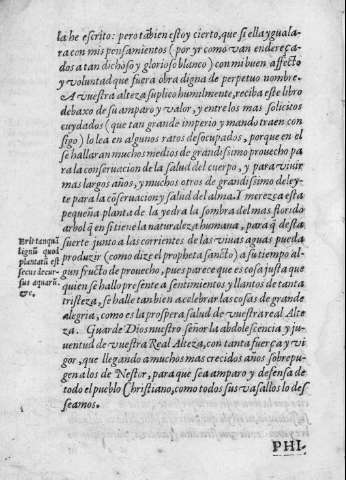 la he escrito: pero tãbien estoy cierto, que si ella yguala-
ra con mis pensamientos (por yr como van endereça-
dos a tan dichoso y glorioso blanco) con mi buen affecto
y voluntad que fuera obra digna de perpetuo nombre.
A vuestra alteza suplico humilmente, reciba este libro
debaxo de su amparo y valor, y entre los mas solicitos
cuydados (que tan grande imperio y mando traen con
sigo) lo lea en algunos ratos desocupados, porque en el
se hallaran muchos medios de grandissimo prouecho pa
ra la conseruacion de la salud del cuerpo, y para viuir
mas largos años, y muchos otros de grandissimo deley-
te para la cõseruacion y salud del alma. I merezca esta
pequeña planta de la yedra la sombra del mas florido
arbol q̃ en si tiene la naturaleza humana, para q̃ desta
suerte junto a las corrientes de las viuas aguas pueda
produzir (como dize el propheta sancto) a su tiempo al-
gun fructo de prouecho, pues parece que es cosa justa que
quien se hallo presente a sentimientos y llantos de tanta
tristeza, se halle tambien a celebrar las cosas de grande
alegria, como es la prospera salud de vuestra real Alte
za. Guarde Dios nuestro señor la abdolescencia y ju-
uentud de vuestra Real Alteza, con tanta fuerça y vi
gor, que llegando a muchos mas crecidos años sobrepu-
gen a los de Nestor, para que sea amparo y defensa de
todo el pueblo Christiano, como todos sus vasallos lo des-
seamos.
Erit tanquã
lignũ quod
plantatũ est
secus decur-
sus aquarũ.
&c.
PHI-